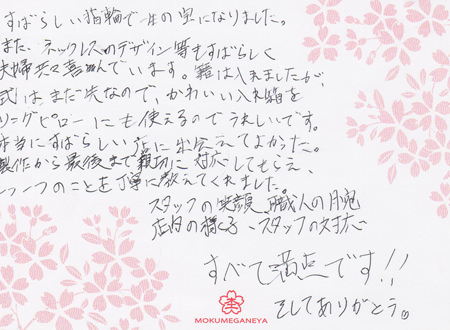 すばらしい指輪で一生の宝になりました。
また、ネックレスのデザイン等もすばらしく
夫婦共々喜んでいます。籍は入れましたが、
式はまだ先なので、かわいい入れ箱を
リングピローにも使えるのでうれしいです。
本当にすばらしい店に出会えてよかった。
製作から最後まで親切に対応してもらえ、
一つ一つのことを丁寧に教えてくれました。
スタッフの笑顔、職人の
店内の様子、スタッフの対応
すべて満点です!!
そしてありがとう。
MOKUMEGANEYA